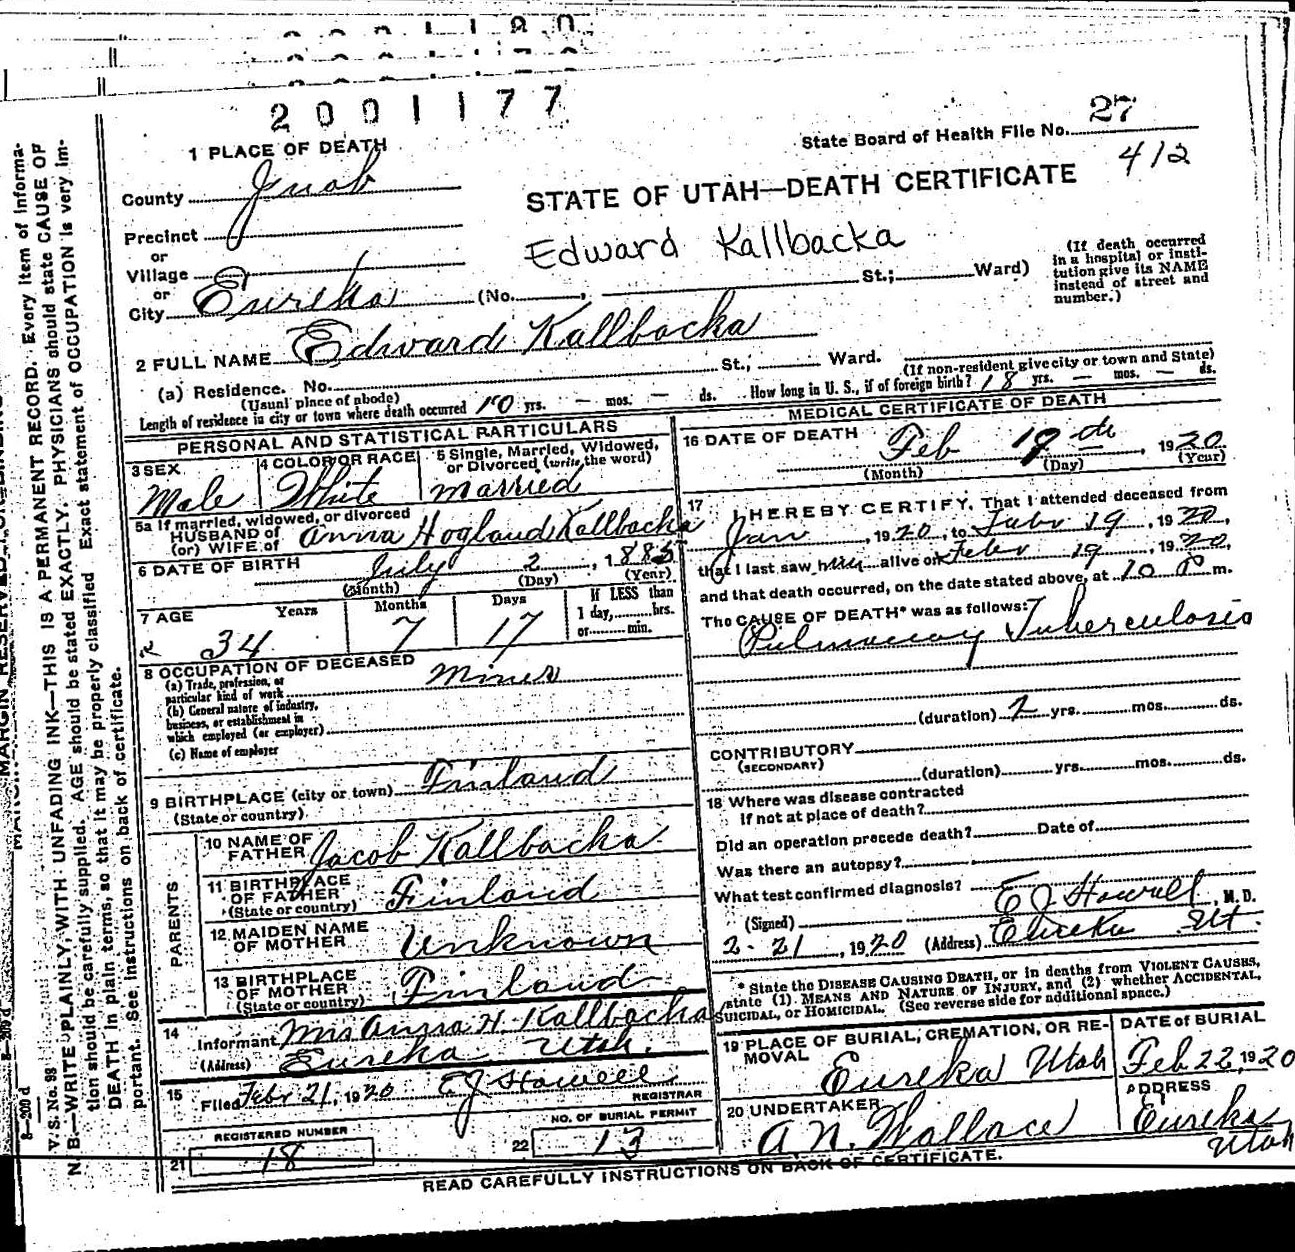 2001177
State Board of Health File No. 27
412
1 PLACE OF DEATH
County Juab
STATE OF UTAH—DEATH CERTIFICATE
Precinct
or
Village
or
City Eureka (No. , St.; Ward)
Edward Kallbacka
(If death occurred in a hospital or institution give its NAME instead of street and number.)
2 FULL NAME Edward Kallbacka
(a) Residence. No. St., Ward.
(Usual place of abode) (If non-resident give city or town and State)
Length of residence in city or town where death occurred 10 yrs. — mos. — ds. How long in U. S., if of foreign birth? 18 yrs. — mos. — ds.
PERSONAL AND STATISTICAL PARTICULARS
3 SEX Male
4 COLOR OR RACE White
5 Single, Married, Widowed, or Divorced (write the word) married
5a If married, widowed, or divorced
HUSBAND of
(or) WIFE of Anna Hogland Kallbacka
6 DATE OF BIRTH July 2, 1885
(Month) (Day) (Year)
7 AGE Years Months Days If LESS than 1 day, hrs. or min.
34 7 17
8 OCCUPATION OF DECEASED
(a) Trade, profession, or particular kind of work Miner
(b) General nature of industry, business, or establishment in which employed (or employer)
(c) Name of employer
9 BIRTHPLACE (city or town) Finland
(State or country)
PARENTS
10 NAME OF FATHER Jacob Kallbacka
11 BIRTHPLACE OF FATHER (State or country) Finland
12 MAIDEN NAME OF MOTHER Unknown
13 BIRTHPLACE OF MOTHER (State or country) Finland
14 Informant Mrs Anna H. Kallbacka
(Address) Eureka Utah.
15 Filed Febr 21, 1920 E J Howell
REGISTRAR
REGISTERED NUMBER
21 18
NO. OF BURIAL PERMIT
22 13
MEDICAL CERTIFICATE OF DEATH
16 DATE OF DEATH Feb 19 th, 1920
(Month) (Day) (Year)
17 I HEREBY CERTIFY, That I attended deceased from
Jan, 1920, to Febr 19, 1920,
that I last saw him alive on Febr 19, 1920,
and that death occurred, on the date stated above, at 10 P m.
The CAUSE OF DEATH* was as follows:
Pulmonary Tuberculosis
(duration) 2 yrs. mos. ds.
CONTRIBUTORY
(SECONDARY)
(duration) yrs. mos. ds.
18 Where was disease contracted
if not at place of death?
Did an operation precede death? Date of
Was there an autopsy?
What test confirmed diagnosis?
(Signed) E J Howell, M. D.
2-21, 1920 (Address) Eureka Ut
* State the DISEASE CAUSING DEATH, or in deaths from VIOLENT CAUSES, state (1) MEANS AND NATURE OF INJURY, and (2) whether ACCIDENTAL, SUICIDAL, or HOMICIDAL. (See reverse side for additional space.)
19 PLACE OF BURIAL, CREMATION, OR REMOVAL Eureka Utah
DATE of BURIAL Feb 22, 1920
20 UNDERTAKER A N. Wallace
ADDRESS Eureka Utah
READ CAREFULLY INSTRUCTIONS ON BACK OF CERTIFICATE.
V. S. No. 98
N. B.—WRITE PLAINLY, WITH UNFADING INK—THIS IS A PERMANENT RECORD. Every item of information should be carefully supplied. AGE should be stated EXACTLY. PHYSICIANS should state CAUSE OF DEATH in plain terms, so that it may be properly classified. Exact statement of OCCUPATION is very important. See instructions on back of certificate.